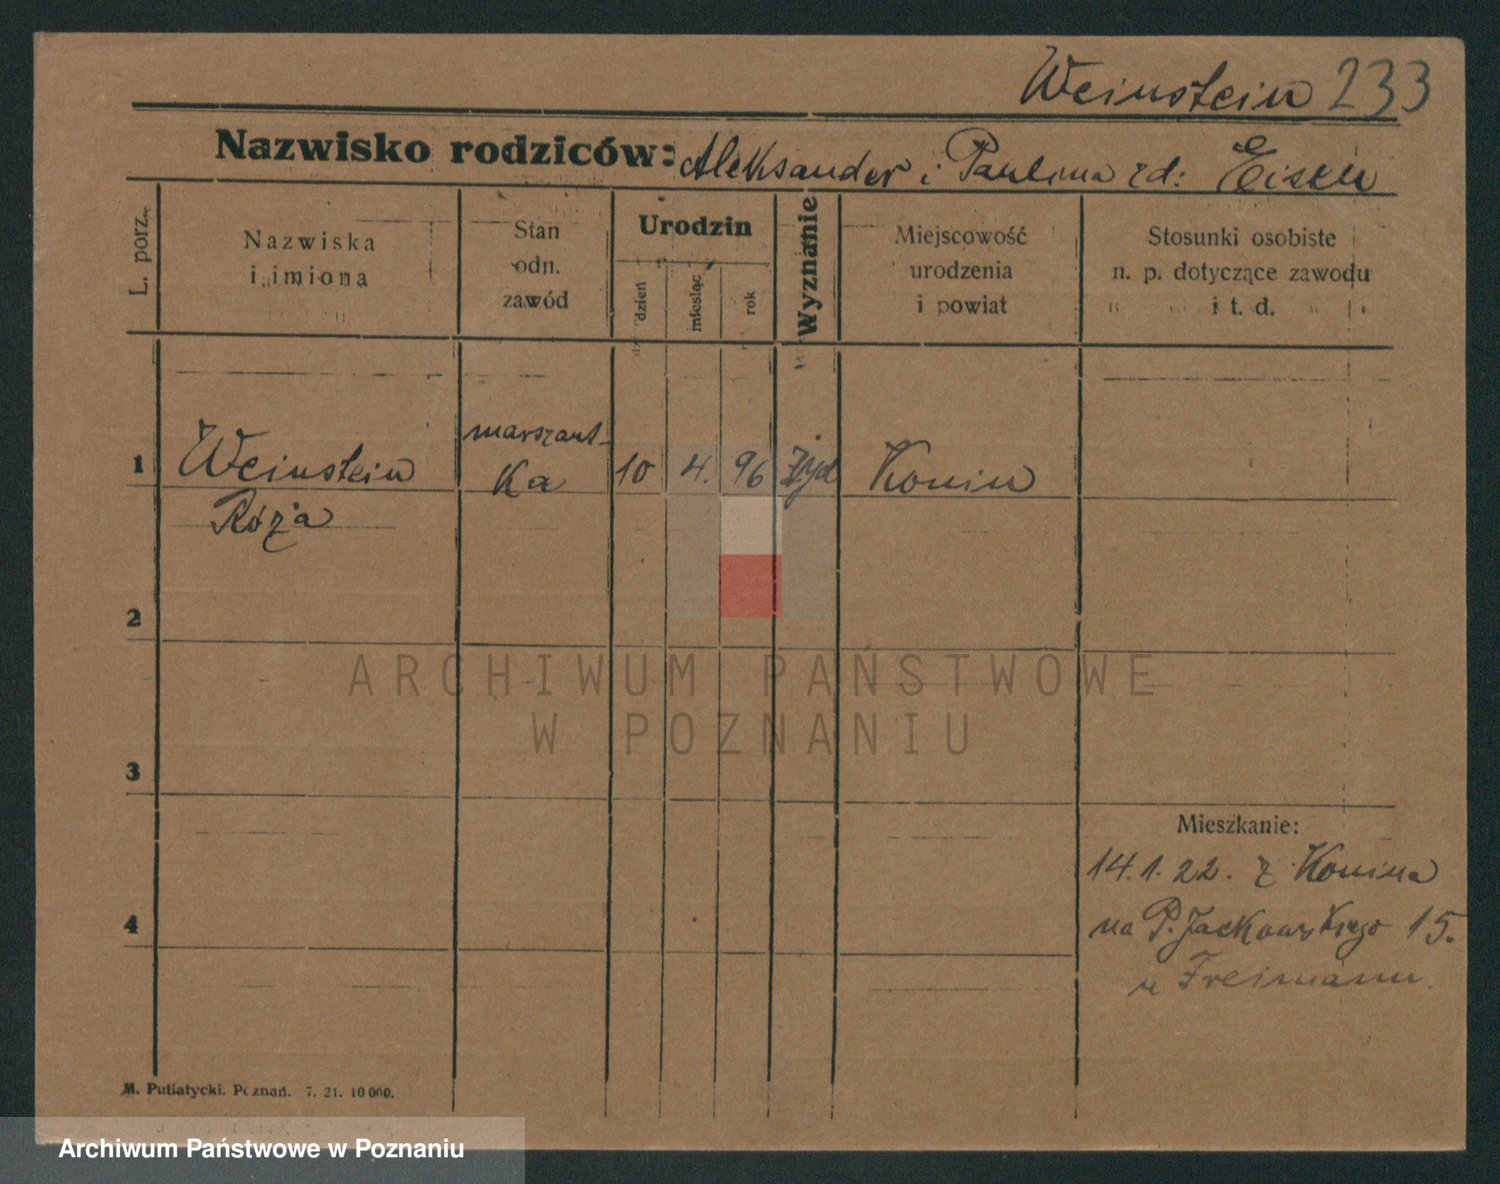 Weinstein 233
Nazwisko rodziców: Aleksander i Paulina zd: Eisen
L. porz.
Nazwiska
i imiona
Stan
odn.
zawód
Urodzin
dzień
miesiąc
rok
Wyznanie
Miejscowość
urodzenia
i powiat
Stosunki osobiste
n. p. dotyczące zawodu
i t. d.
1 Weinstein
Róża
marszant-
ka
10 4. 96 żyd Konin
2
3
4
Mieszkanie:
14.1.22. z Konina
na P. Jackowskiego 15.
u Freimann.
ARCHIWUM PAŃSTWOWE
W POZNANIU
M. Putiatycki. Poznań. 7. 21. 10 000.
Archiwum Państwowe w Poznaniu